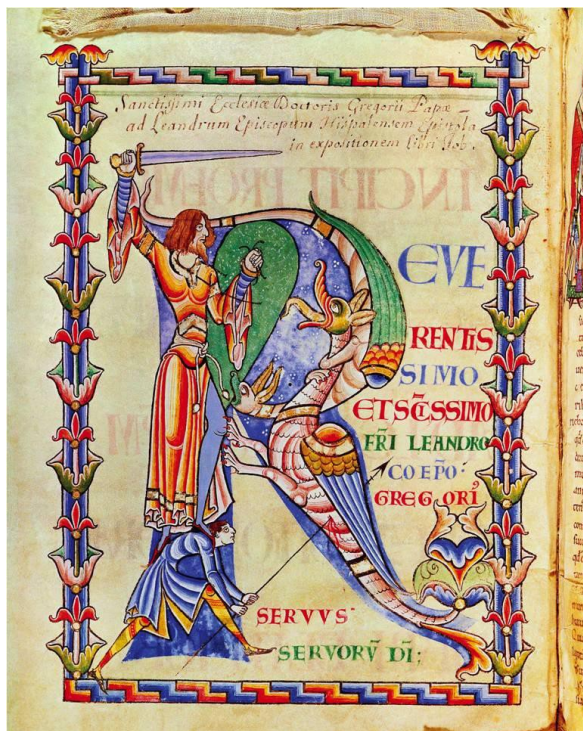 Sanctissimi Ecclesiæ Doctoris Gregorii Papæ
ad Leandrum Episcopum Hispalensem Epistola
in expositionem libri Iob.
REVE
RENTIS
SIMO
ET SC̄ISSIMO
FR̄I LEANDRO
COEP̄O:
GREGORI᾽
SERVVS
SERVORV̄ D̄I: